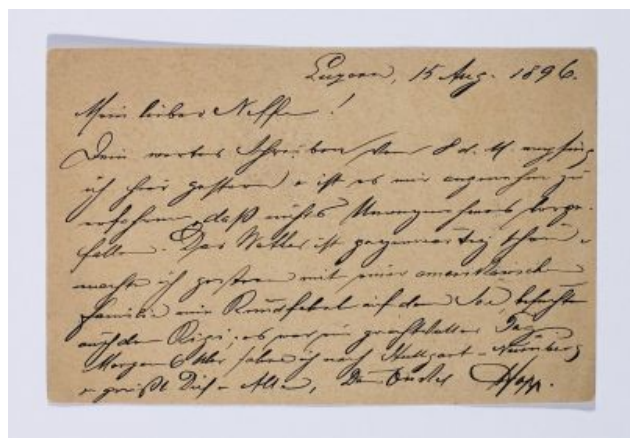 Luzern, 15 Aug. 1896.
Mein lieber Neffe!
Dein werthes Schreiben vom 8 d. M. empfing
ich hier gestern & ist es mir angenehm zu
erfahren, daß nichts Unangenehmes vorge-
fallen. Das Wetter ist gegenwärtig schön &
machte ich gestern mit einer amerikanischen
Familie eine Rundfahrt auf dem See, besuchte
auch den Rigi; es war ein prachtvoller Tag.
Morgen fahre ich nach Stuttgart - Nürnberg
& grüßt Dich & Alle, Dein Onkel